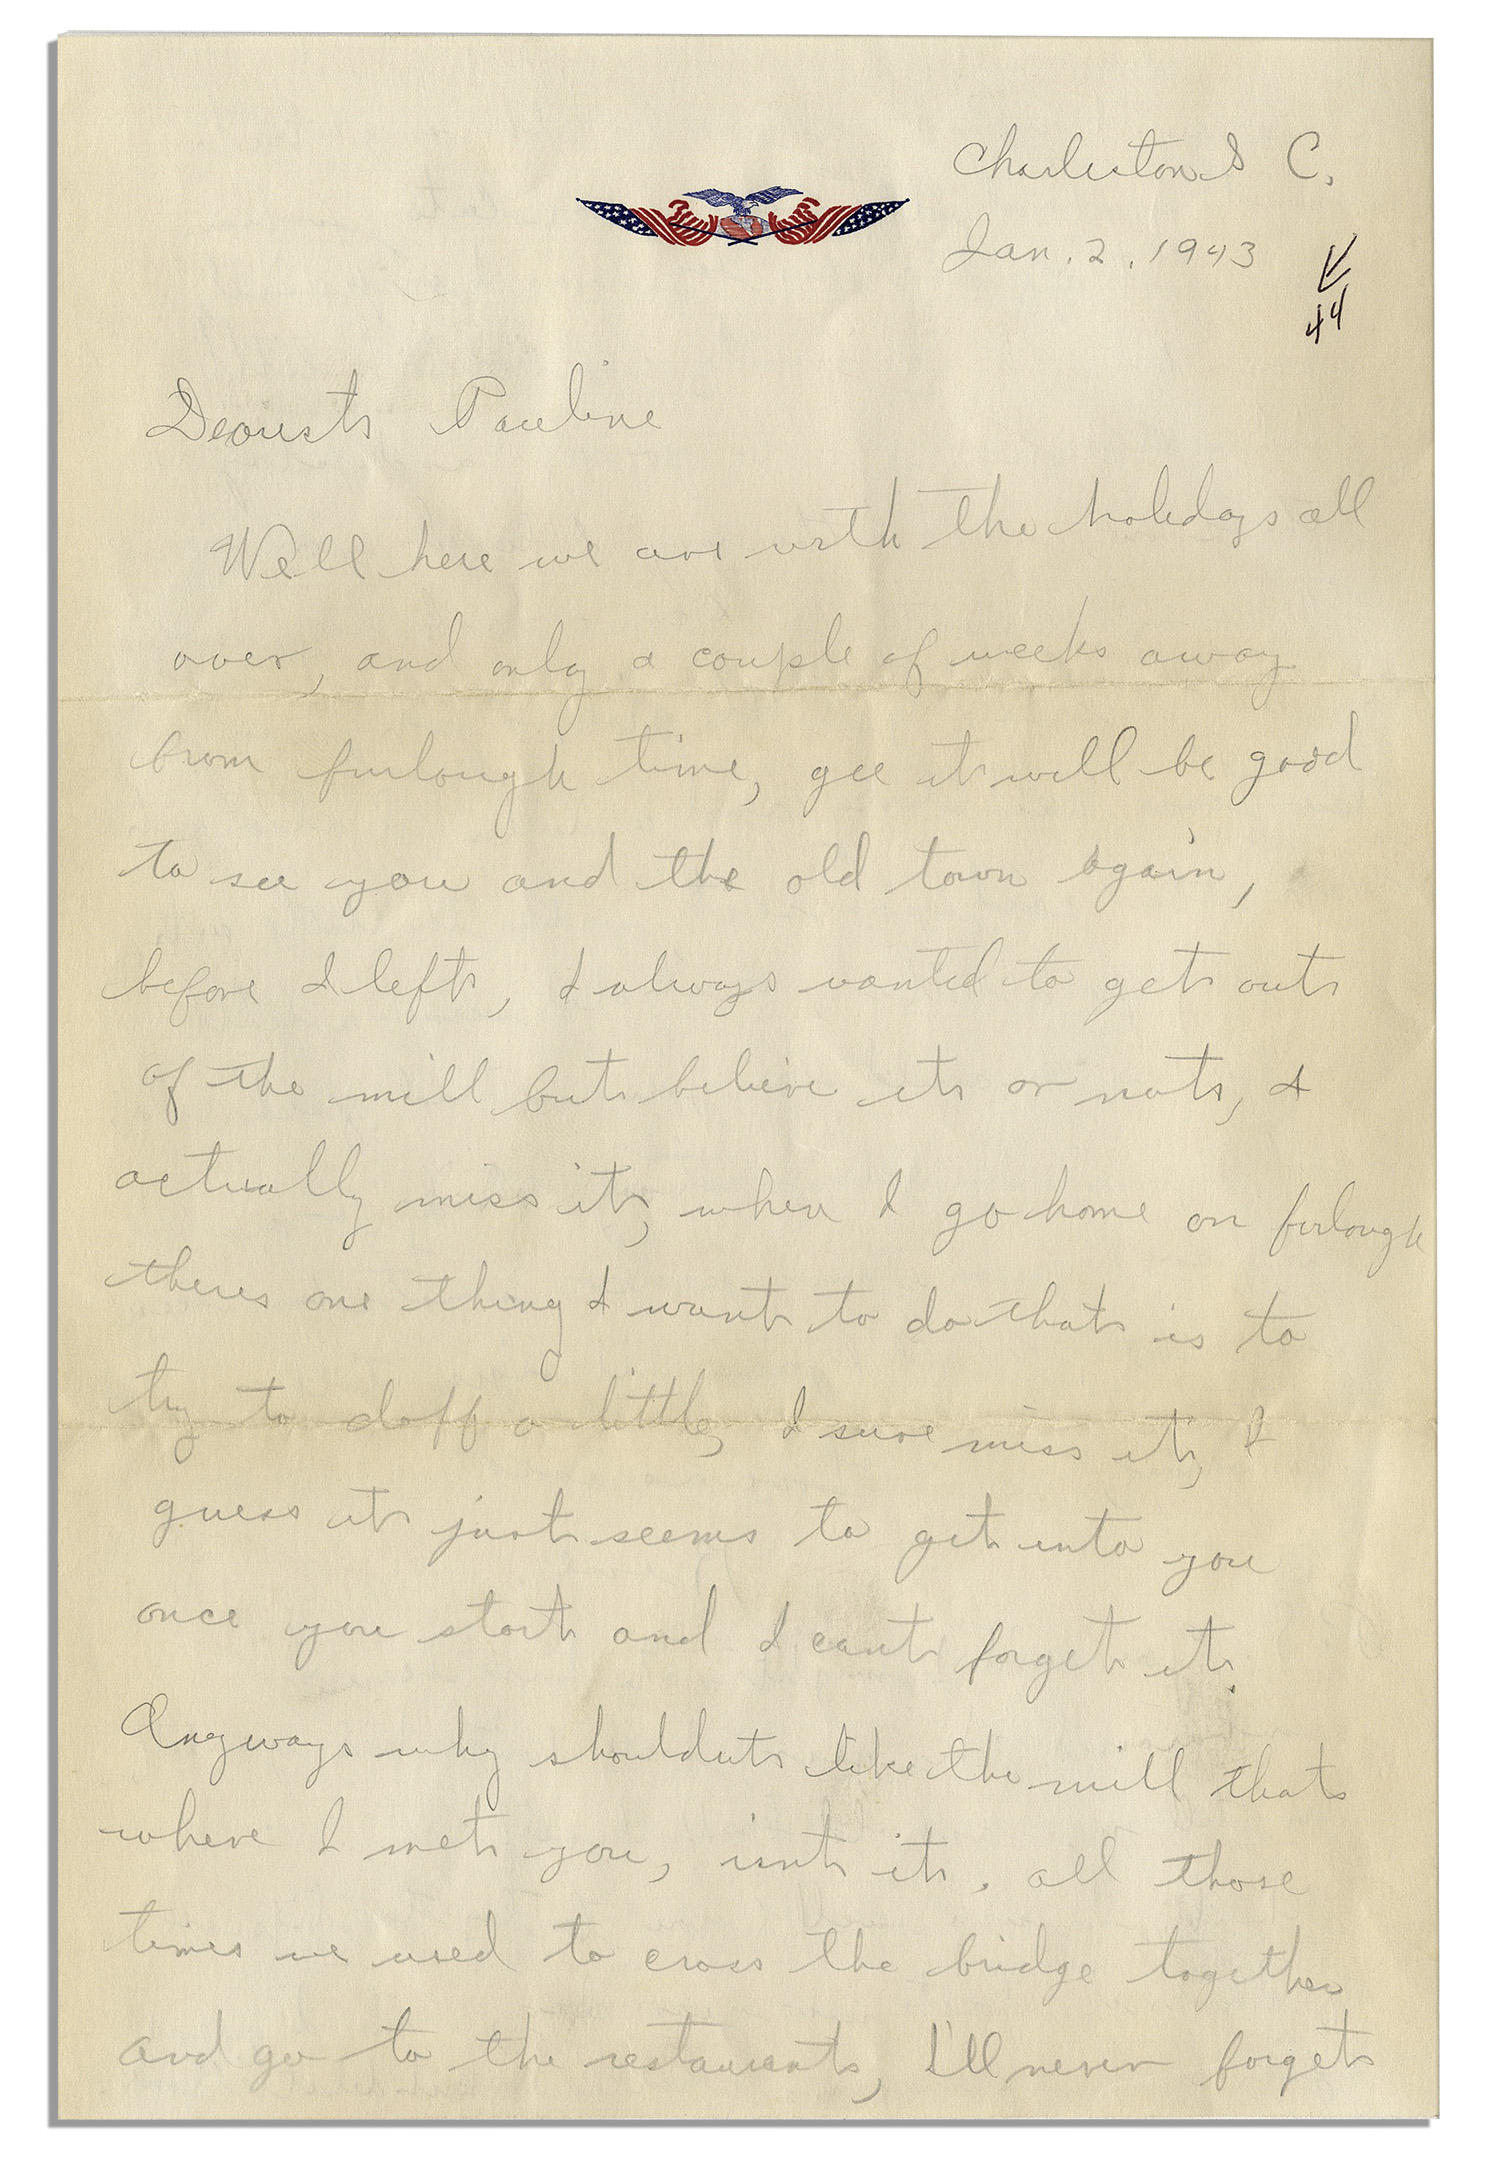 Charleston S C.
Jan. 2, 1943
44
Dearest Pauline
Well here we are with the holidays all
over, and only a couple of weeks away
from furlough time, gee it will be good
to see you and the old town again,
before I left, I always wanted to get out
of the mill but believe it or not, I
actually miss it, when I go home on furlough
theres one thing I want to do that is to
try to doff a little, I sure miss it, I
guess it just seems to get into you
once you start and I cant forget it.
Anyways why shouldnt like the mill thats
where I met you, isnt it, all those
times we used to cross the bridge together
and go to the restaurants, I'll never forget